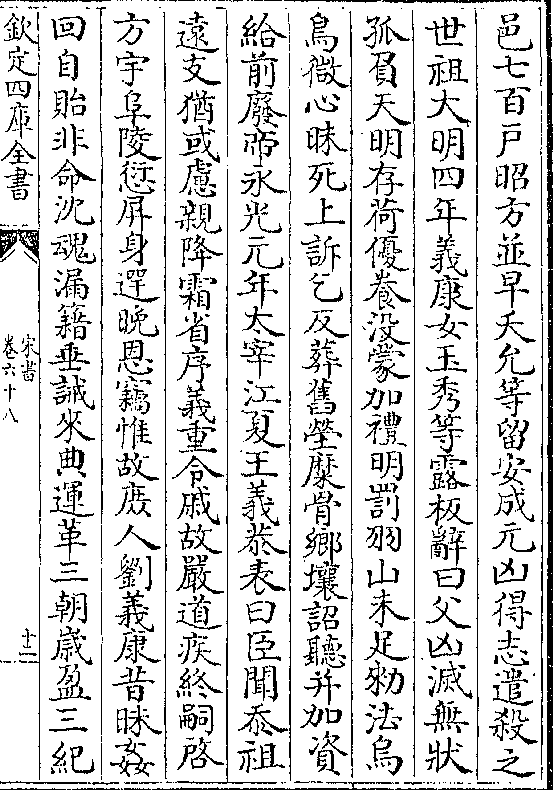 邑七百戸昭方並早夭允等留安成元凶得志遣殺之
世祖大明四年義康女玉秀等露板辭曰父凶滅無狀
孤負天明存荷優養没蒙加禮明罰羽山未足勑法烏
鳥微心昧死上訴乞反葬舊塋糜骨鄉壤詔聽并加資
給前廢帝永光元年太宰江夏王義恭表曰臣聞忝祖
遠支猶或慮親降霜省序義重令戚故嚴道疾終嗣啓
方宇阜陵愆屏身遝晚恩竊惟故庶人劉義康昔昧姦
回自貽非命沈魂漏籍垂誡來典運革三朝歲盈三紀
欽定四庫全書
宋書
卷六十八
十二